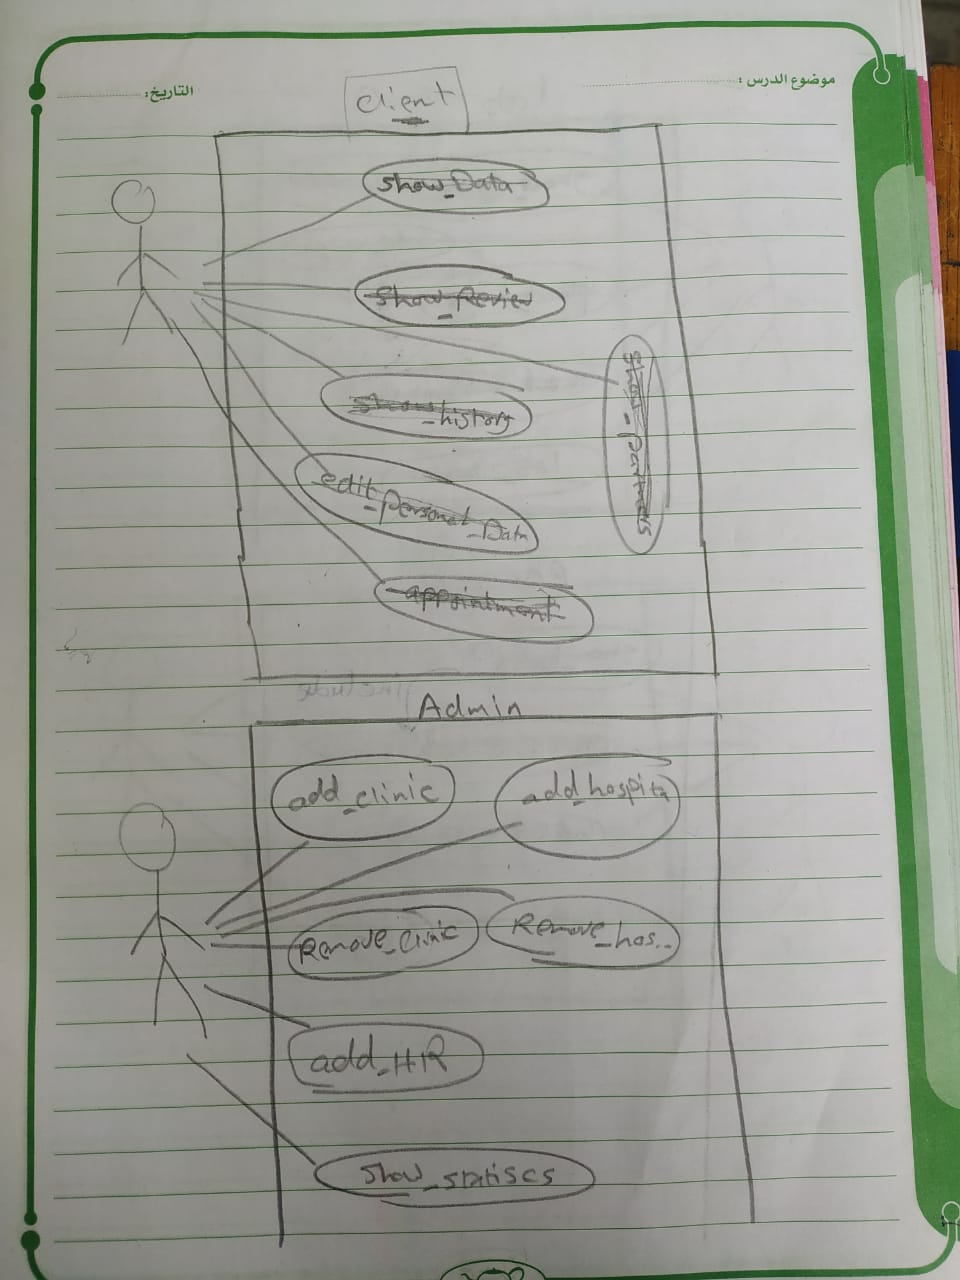 موضوع الدرس :
التاريخ:
client
show_Data
show_Review
show_history
show_partners
edit_personal_Data
appointment
Admin
add_clinic
add_hospita
Remove_clinic
Remove_hos..
add_HR
show_statiscs